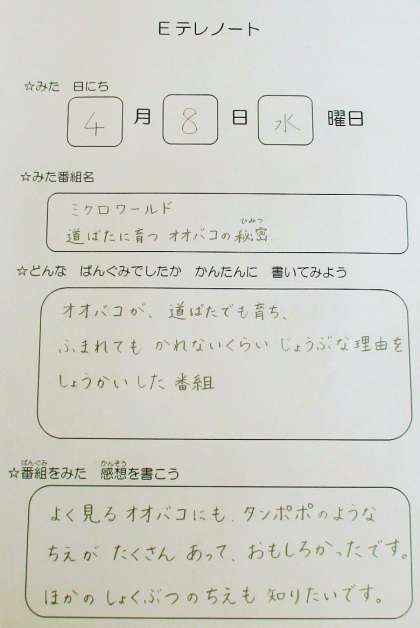 Eテレノート
☆みた 日にち
4 月 8 日 水 曜日
☆みた番組名
ミクロワールド
ひみつ
道ばたに育つ オオバコの秘密
☆どんな ばんぐみでしたか かんたんに 書いてみよう
オオバコが、道ばたでも育ち、
ふまれても かれないくらい じょうぶな理由を
しょうかいした 番組
ばんぐみ かんそう
☆番組をみた 感想を書こう
よく見る オオバコにも、タンポポのような
ちえが たくさん あって、おもしろかったです。
ほかの しょくぶつのちえも 知りたいです。